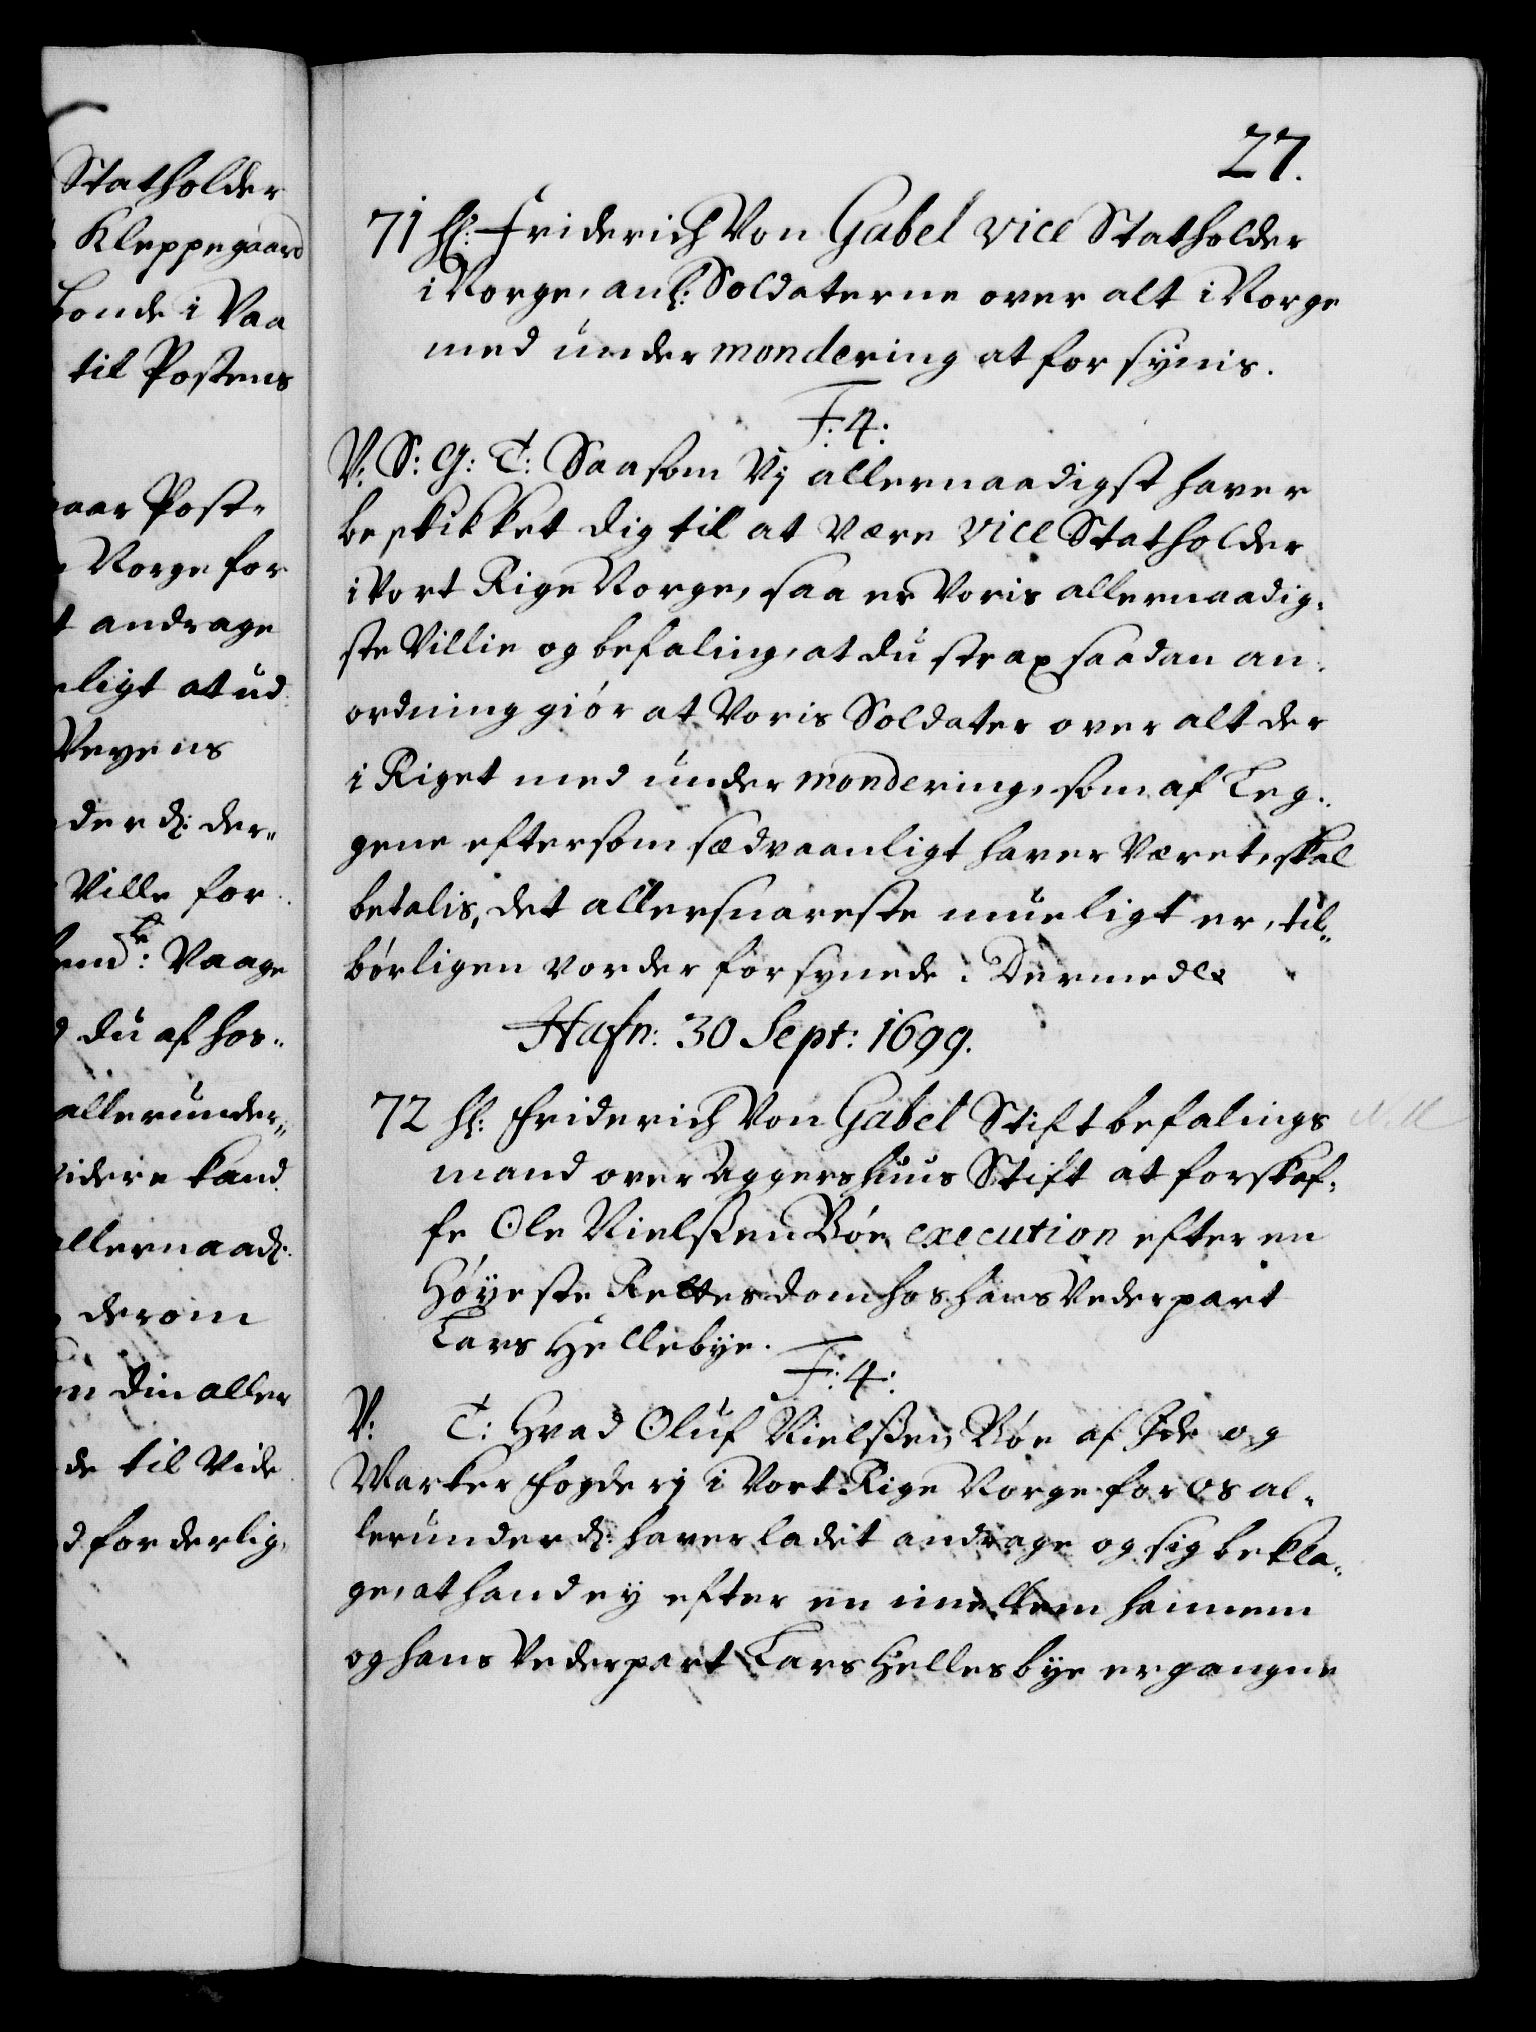 Statholder
Kleppegaard
bonde i Vaa
til Postens
gaar Post-
Norge for
andrage
ligt at ud-
Veyens
der dℓ: der-
Ville for-
Vaage
du af hos-
allerunder-
videre kand
allernaadℓ:
derom
din aller
de til Vide
forderlig
27.
71 Hℓ: Friderich Von Gabel vice Statholder
i Norge, anℓ: Soldaterne over alt i Norge
med under mondering at forsynis.
F: 4:
V: S: G: T: Saasom Vj allernaadigst haver
beskikket dig til at være vice Statholder
i Vort Rige Norge, saa er Voris allernaadig-
ste Villie og befaling, at du strax saadan an-
ordning giör at Voris Soldater over alt der
i Riget med under mondering, som af Leg-
gene eftersom sædvaanligt haver været, skal
betalis, det allersnareste mueligt er, til-
börligen vorder forsynede. Dermed &
Hafn: 30 Sept: 1699.
72 Hℓ: Friderich Von Gabel Stiftbefalings
mand over Aggershuus Stift at forskaf-
fe Ole Nielsßen Böe execution efter en
Höyeste Rettes dom hos hans Vederpart
Lars Hellebye.
F: 4:
V: T: Hvad Oluf Nielsßen Böe af Ide og
Marker Fogderj i Vort Rige Norge for os al-
lerunderdℓ: haver ladet andrage og sig bekla-
ge, at hand ey efter en imellem hannem
og hans Vederpart Lars Hellesbye ergangne